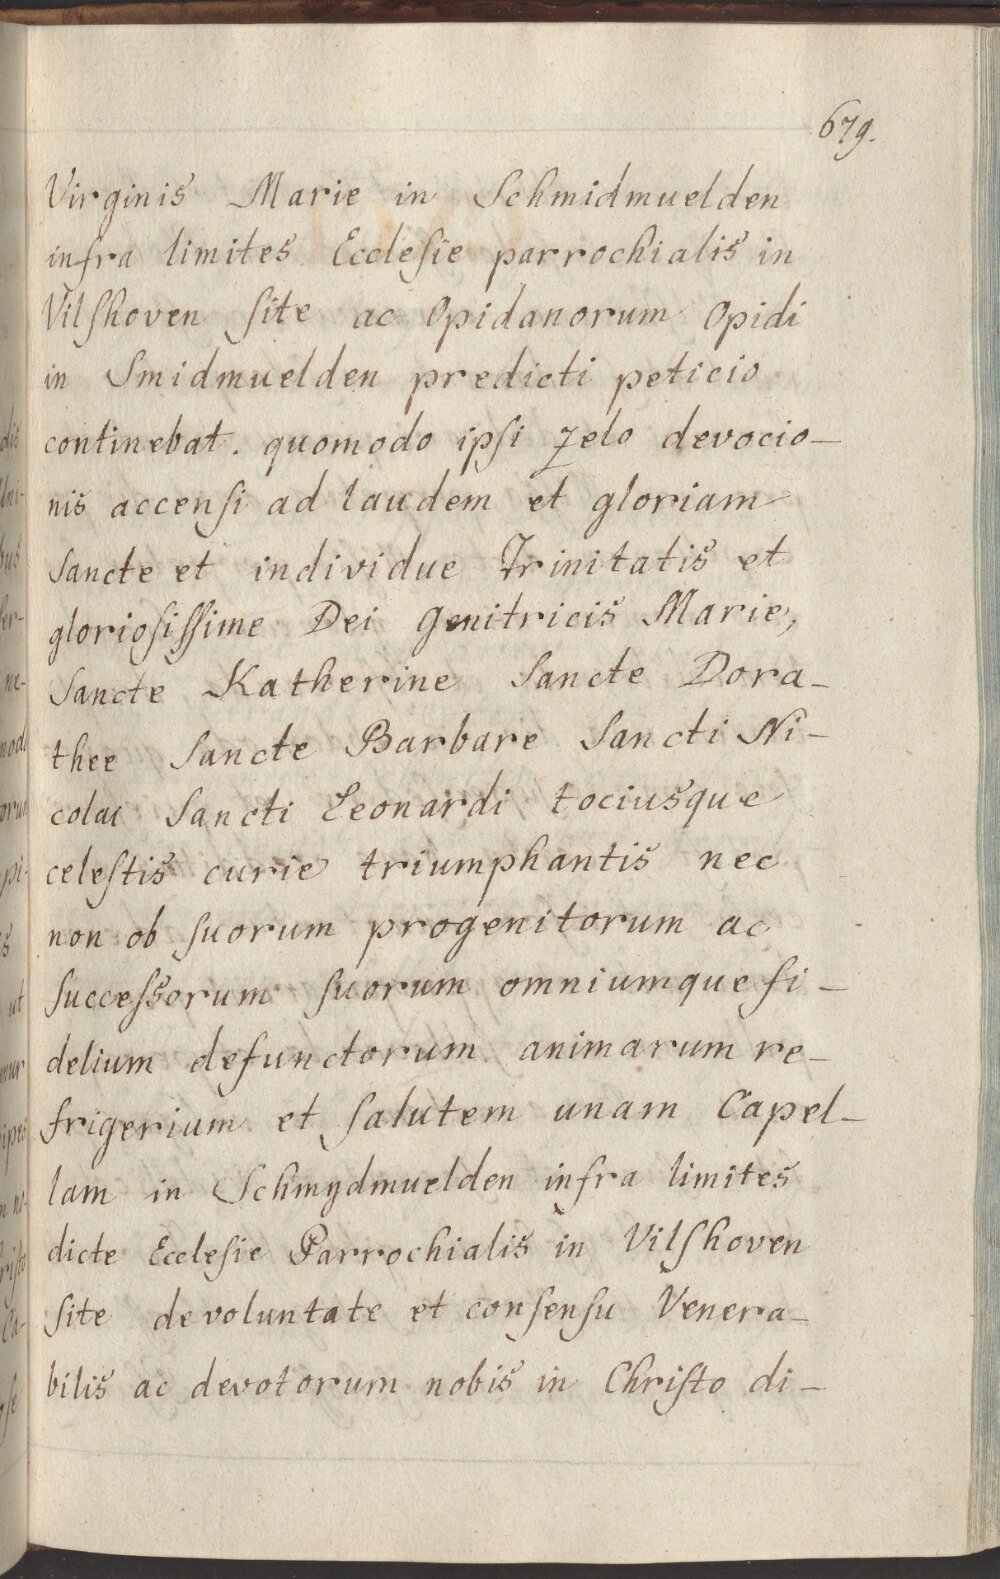 679.
Virginis Marie in Schmidmuelden
infra limites Ecclesie parrochialis in
Vilshoven site ac Opidanorum Opidi
in Smidmuelden predicti peticio
continebat. quomodo ipsi zelo devocio-
nis accensi ad laudem et gloriam
Sancte et individue Trinitatis et
gloriosissime Dei Genitricis Marie,
Sancte Katherine Sancte Dora-
thee Sancte Barbare Sancti Ni-
colai Sancti Leonardi tociusque
celestis curie triumphantis nec
non ob suorum progenitorum ac
successorum suorum omniumque fi-
delium defunctorum animarum re-
frigerium et salutem unam Capel-
lam in Schmydmuelden infra limites
dicte Ecclesie Parrochialis in Vilshoven
site de voluntate et consensu Venera-
bilis ac devotorum nobis in Christo di-